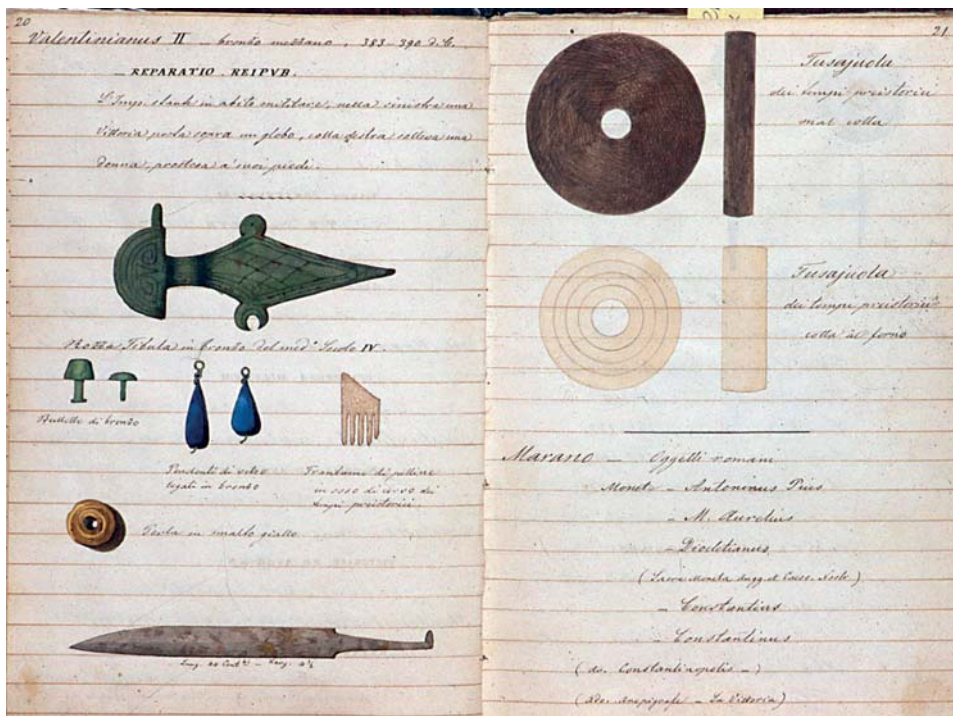 20
Valentinianus II — bronzo mezzano, 383–390 d. C.
— REPARATIO . REIPVB.
L'Imp. stante in abito militare, nella sinistra una
Vittoria posta sopra un globo, colla destra solleva una
donna, prostesa a' suoi piedi.
Rozza Fibula in bronzo del med.º Secolo IV.
di bronzo
Pendenti di vetro
legati in bronzo
Frantume di pettine
in osso di cervo dei
tempi preistorici.
Perla in smalto giallo
Lung. 20 Cent.
21
Fusajuola
dei tempi preistorici
mal cotta
Fusajuola
dei tempi preistorici
cotta al forno
Marano — Oggetti romani
Monete — Antoninus Pius
— M. Aurelius
— Diocletianus
(Sacra Moneta Augg. et Caess. Nostr.)
— Constantius
— Constantinus
(do. Constantinopolis —)
(Ado. Anepigrafe — La Vittoria)